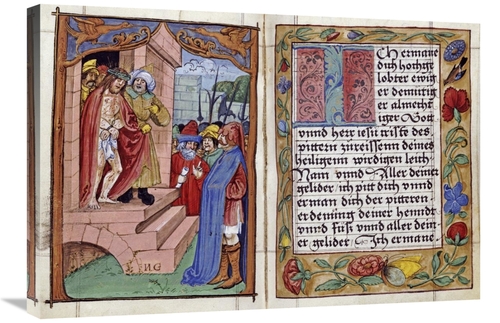 NG
Ich ermane
dich hochge
lobter ewig
er demutig
er almecht
iger Gott
vnnd herr iesu criste des
pittern zureissenn deines
heiligenn wirdigen leich
Nam vnnd Aller deiner
gelider ich pitt dich vnnd
erman dich der pitteren
er deming deiner henndt
vnnd fuß vnnd aller dein
er gelider Ich ermane